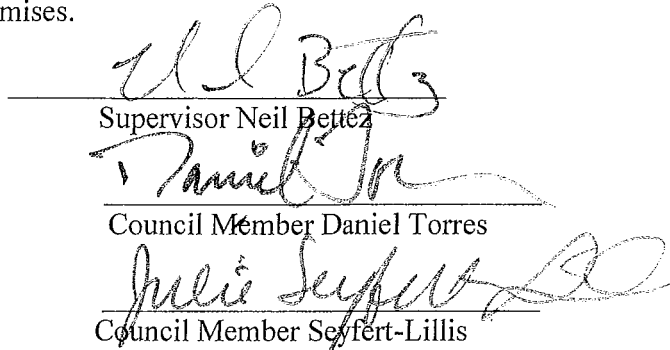 mises.
Neil Bettez
Supervisor Neil Bettez
Daniel Torres
Council Member Daniel Torres
Julie Seyfert-Lillis
Council Member Seyfert-Lillis